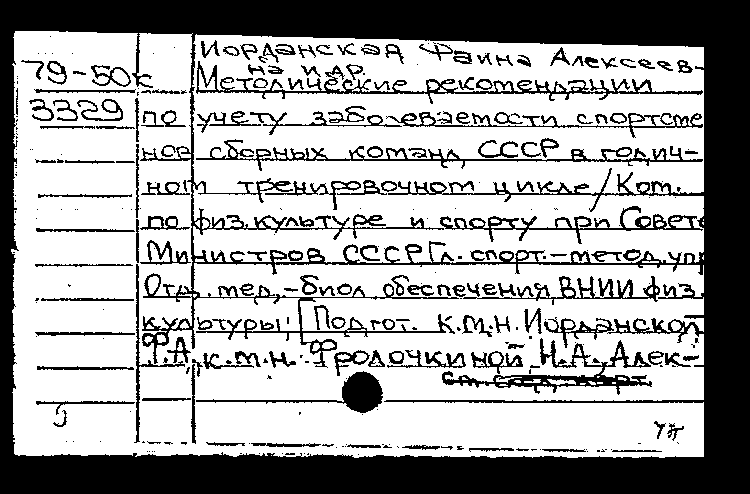 Иорданская Фаина Алексеев-
на и др.
79-50к Методические рекомендации
3329 по учету заболеваемости спортсме
нов сборных команд СССР в годич-
ном тренировочном цикле/Ком.
по физ.культуре и спорту при Совете
Министров СССР, Гл. спорт.-метод. упр
Отд. мед.-биол обеспечения, ВНИИ физ.
культуры; [Подгот. к.м.н. Иорданской
Ф.А., к.м.н. Фролочкиной, Н.А., Алек-
см. след. карт.